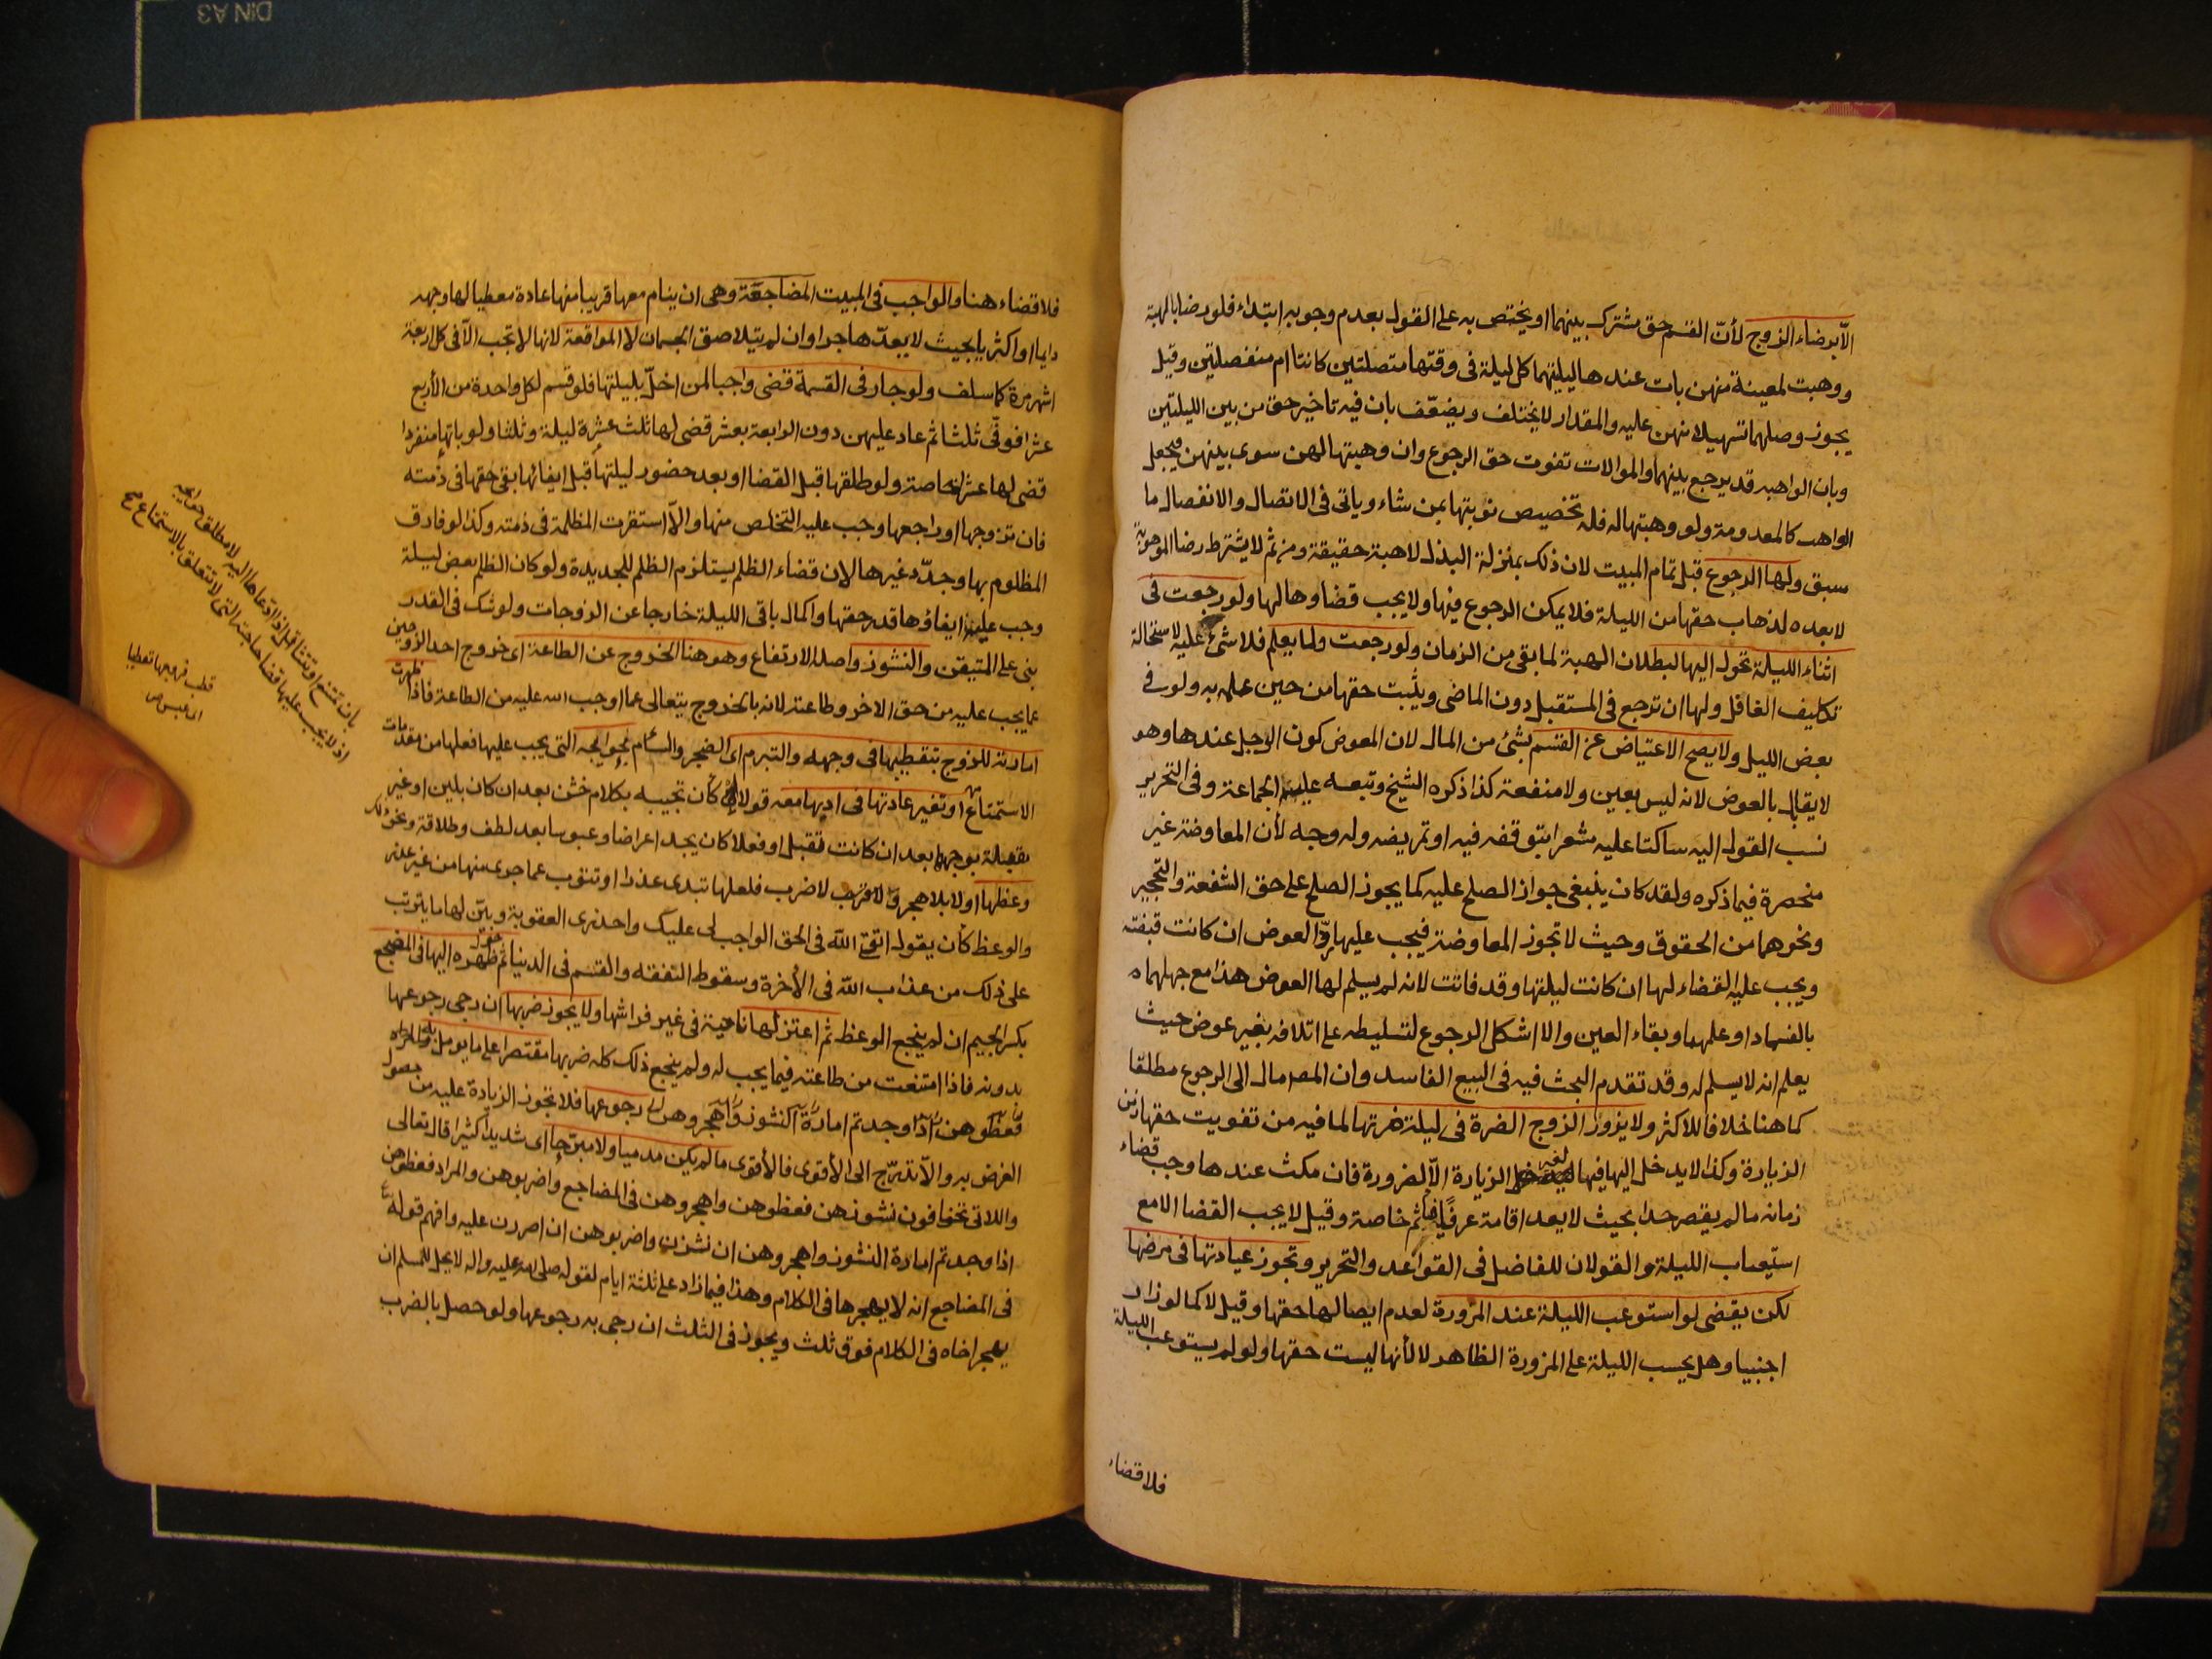 الّا برضاء الزوج لأنّ القسم حق مشترك بينهما او يختص به على القول بعدم وجوبه ابتداء فلو رضا بالهبة
ووهبت لمعينة منهن بات عندها ليلتهما كل ليلة فى وقتها متصلتين كانتا ام منفصلتين وقيل
يجوز وصلهما تسهيلا عليه والمقدار لا يختلف ويضعّف بان فيه تاخير حق من بين الليلتين
وبان الواهبه قد يرجع بينهما والموالات تفوت حق الرجوع وان وهبتها لهن سوى بينهن فيجعل
الواهب كالمعدومة ولو وهبتها له فله تخصيص نوبتها بمن شاء وياتى فى الاتصال والانفصال ما
سبق ولها الرجوع قبل تمام المبيت لان ذلك بمنزلة البذل لا هبة حقيقة ومن ثم لا يشترط رضا الموهوبة
لا بعده لذهاب حقها من الليلة فلا يمكن الرجوع فيها ولا يجب قضاوها لها ولو رجعت فى
اثناء الليلة تحول اليها لبطلان الهبة لما بقى من الزمان ولو رجعت ولما يعلم فلا شئ عليه لاستحالة
تكليف الغافل ولها ان ترجع فى المستقبل دون الماضى ويثبت حقها من حين علمه به ولو فى
بعض الليل ولا يصح الاعتياض عن القسم بشئ من المال لان المعوض كون الرجل عندها وهو
لا يقابل بالعوض لانه ليس بعين ولا منفعة كذا ذكره الشيخ وتبعه عليه الجماعة وفى التحرير
نسب القول اليه ساكتا عليه مشعرا بتوقفه فيه او تمريضه وله وجه لأن المعاوضة غير
منحصرة فيما ذكره ولقد كان ينبغى جواز الصلح عليه كما يجوز الصلح على حق الشفعة والتحجير
ونحوهما من الحقوق وحيث لا تجوز المعاوضة فيجب عليها ردّ العوض ان كانت قبضته
ويجب عليه القضاء لها ان كانت ليلتها وقد فاتت لانه لم يسلم لها العوض هذا مع جهلهما
بالفساد او علمهما وبقاء العين والا اشكل الرجوع لتسليطه على اتلافه بغير عوض حيث
يعلم انه لا يسلم له وقد تقدم البحث فيه فى البيع الفاسد وان المص مال الى الرجوع مطلقا
كما هنا خلافا للاكثر ولا يزور الزوج الضرة فى ليلة ضرتها لما فيه من تفويت حقها زمن
الزيارة وكذا لا يدخل اليها فيها لغير الزيارة الّا لضرورة فان مكث عندها وجب قضاء
زمانه ما لم يقصر جدا بحيث لا يعد اقامة عرفًا فيأثم خاصة وقيل لا يجب القضا الا مع
استيعاب الليلة والقولان للفاضل فى القواعد والتحرير وتجوز عيادتها فى مرضها
لكن يقضى لو استوعب الليلة عند المزورة لعدم ايصالها حقها وقيل لا كما لو زار
اجنبيا وهل يحسب الليلة على المزورة الظاهر لا لأنها ليست حقها ولو لم يستوعب الليلة
فلا قضاء
فلا قضاء هنا والواجب فى المبيت المضاجعة وهى ان ينام معها قريبا منها عادة معطيا لها وجهه
دايما او اكثريا بحيث لا يعدّ هاجرا وان لم يتلاصق الجسمان لا المواقعة لانها لا تجب الّا فى كل اربعة
اشهر مرة كما سلف ولو جار فى القسمة قضى واجبا لمن اخلّ بليلتها فلو قسم لكل واحدة من الأربع
عشرا فوفّى ثلثا ثم عاد عليهن دون الرابعة بعشر قضى لها ثلث عشرة ليلة وثلثا ولو باتها منفردا
قضى لها عشرا خاصة ولو طلقها قبل القضا او بعد حضور ليلتها قبل ايفائها بقى حقها فى ذمته
فان تزوجها او راجعها وجب عليه التخلص منها والّا استقرت المظلمة فى ذمته وكذا لو فارق
المظلوم بها وجدّد غيرها لان قضاء الظلم يستلزم الظلم للجديدة ولو كان الظلم بعض ليلة
وجب عليه ايفاؤها قدر حقها واكمال باقى الليلة خارجا عن الزوجات ولو شك فى القدر
بنى على المتيقن والنشوز واصله الارتفاع وهو هنا الخروج عن الطاعة اى خروج احد الزوجين
عما يجب عليه من حق الاخر وطاعته لانه بالخروج يتعالى عما اوجب الله عليه من الطاعة فاذا ظهرت
امارته للزوج بتقطيبها فى وجهه والتبرم اى الضجر والسأم بحوايجه التى يجب عليها فعلها من مقدمات
الاستمتاع او تغير عادتها فى ادبها معه قولا كأن تجيبه بكلام خشن بعد ان كان بلين او غير
مقبلة بوجهها بعد ان كانت تقبل او فعلا كان يجد اعراضا وعبوسا بعد لطف وطلاقة ونحو ذلك
وعظها اولا بلا هجر ولا ضرب فلعلها تبدى عذرا او تتوب عما جرى منها من غير عذر
والوعظ كأن يقول اتقى اللّه فى الحق الواجب لى عليك واحذرى العقوبة ويبيّن لها ما يترتب
على ذلك من عذاب اللّه فى الأخرة وسقوط النفقة والقسم فى الدنيا ثم حول ظهره اليها فى المضجع
بكسر الجيم ان لم ينجع الوعظ ثم اعتزلها ناحية فى غير فراشها ولا يجوز ضربها ان رجى رجوعها
بدونه فاذا امتنعت من طاعته فيما يجب له ولم ينجع ذلك كله ضربها مقتصرا على ما يومل به
فعظوهن اذا وجدتم امارة النشوز واهجروهن رجوعها فلا تجوز الزيادة عليه من حصول
الغرض به والّا تدرّج الى الأقوى فالأقوى ما لم يكن مدميا ولا مبرّحا اى شديدا كثيرا قال تعالى
واللاتى تخافون نشوزهن فعظوهن واهجروهن فى المضاجع واضربوهن والمراد فعظوهن
اذا وجدتم امارة النشوز واهجروهن ان نشزن واضربوهن ان اصررن عليه وافهم قوله
فى المضاجع انه لا يهجرها فى الكلام وهذا فيما زاد على ثلثة ايام لقوله صلى الله عليه واله لا يحل للمسلم ان
يهجر اخاه فى الكلام فوق ثلث ويجوز فى الثلث ان رجى به رجوعها ولو حصل بالضرب
بان تمتنع او تتثاقل اذا دعاها اليه لا مطلق حوايجه
اذ لا يجب عليها قضا حاجته التى لا تتعلق بالاستمتاع
قطب
العبوس